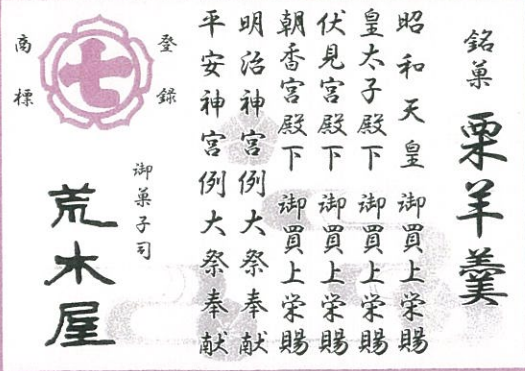 銘菓 栗羊羹
昭和天皇 御買上栄賜
皇太子殿下 御買上栄賜
伏見宮殿下 御買上栄賜
朝香宮殿下 御買上栄賜
明治神宮例大祭奉献
平安神宮例大祭奉献
御菓子司
荒木屋
登録
七
商標